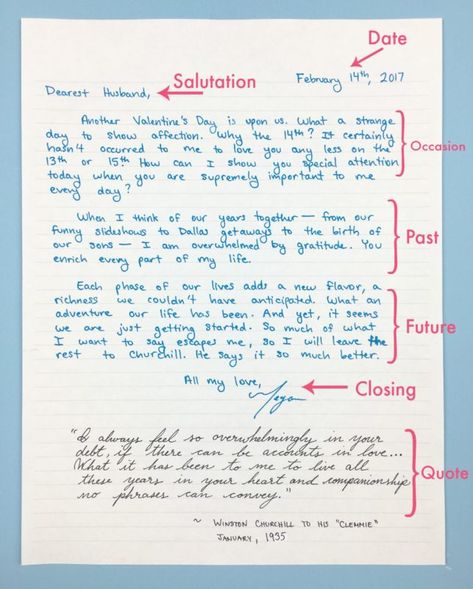 Date
February 14th, 2017
Salutation
Dearest Husband,
Another Valentine's Day is upon us. What a strange
day to show affection. Why the 14th? It certainly
hasn't occurred to me to love you any less on the
13th or 15th How can I show you special attention
today when you are supremely important to me
every day?
Occasion
When I think of our years together — from our
funny slideshows to Dallas getaways to the birth of
our sons — I am overwhelmed by gratitude. You
enrich every part of my life.
Past
Each phase of our lives adds a new flavor, a
richness we couldn't have anticipated. What an
adventure our life has been. And yet, it seems
we are just getting started. So much of what
I want to say escapes me, so I will leave the
rest to Churchill. He says it so much better.
Future
All my love,
Megan
Closing
"I always feel so overwhelmingly in your
debt, if there can be accounts in love...
What it has been to me to live all
these years in your heart and companionship
no phrases can convey."
Quote
~ Winston Churchill to his "Clemmie"
January, 1935